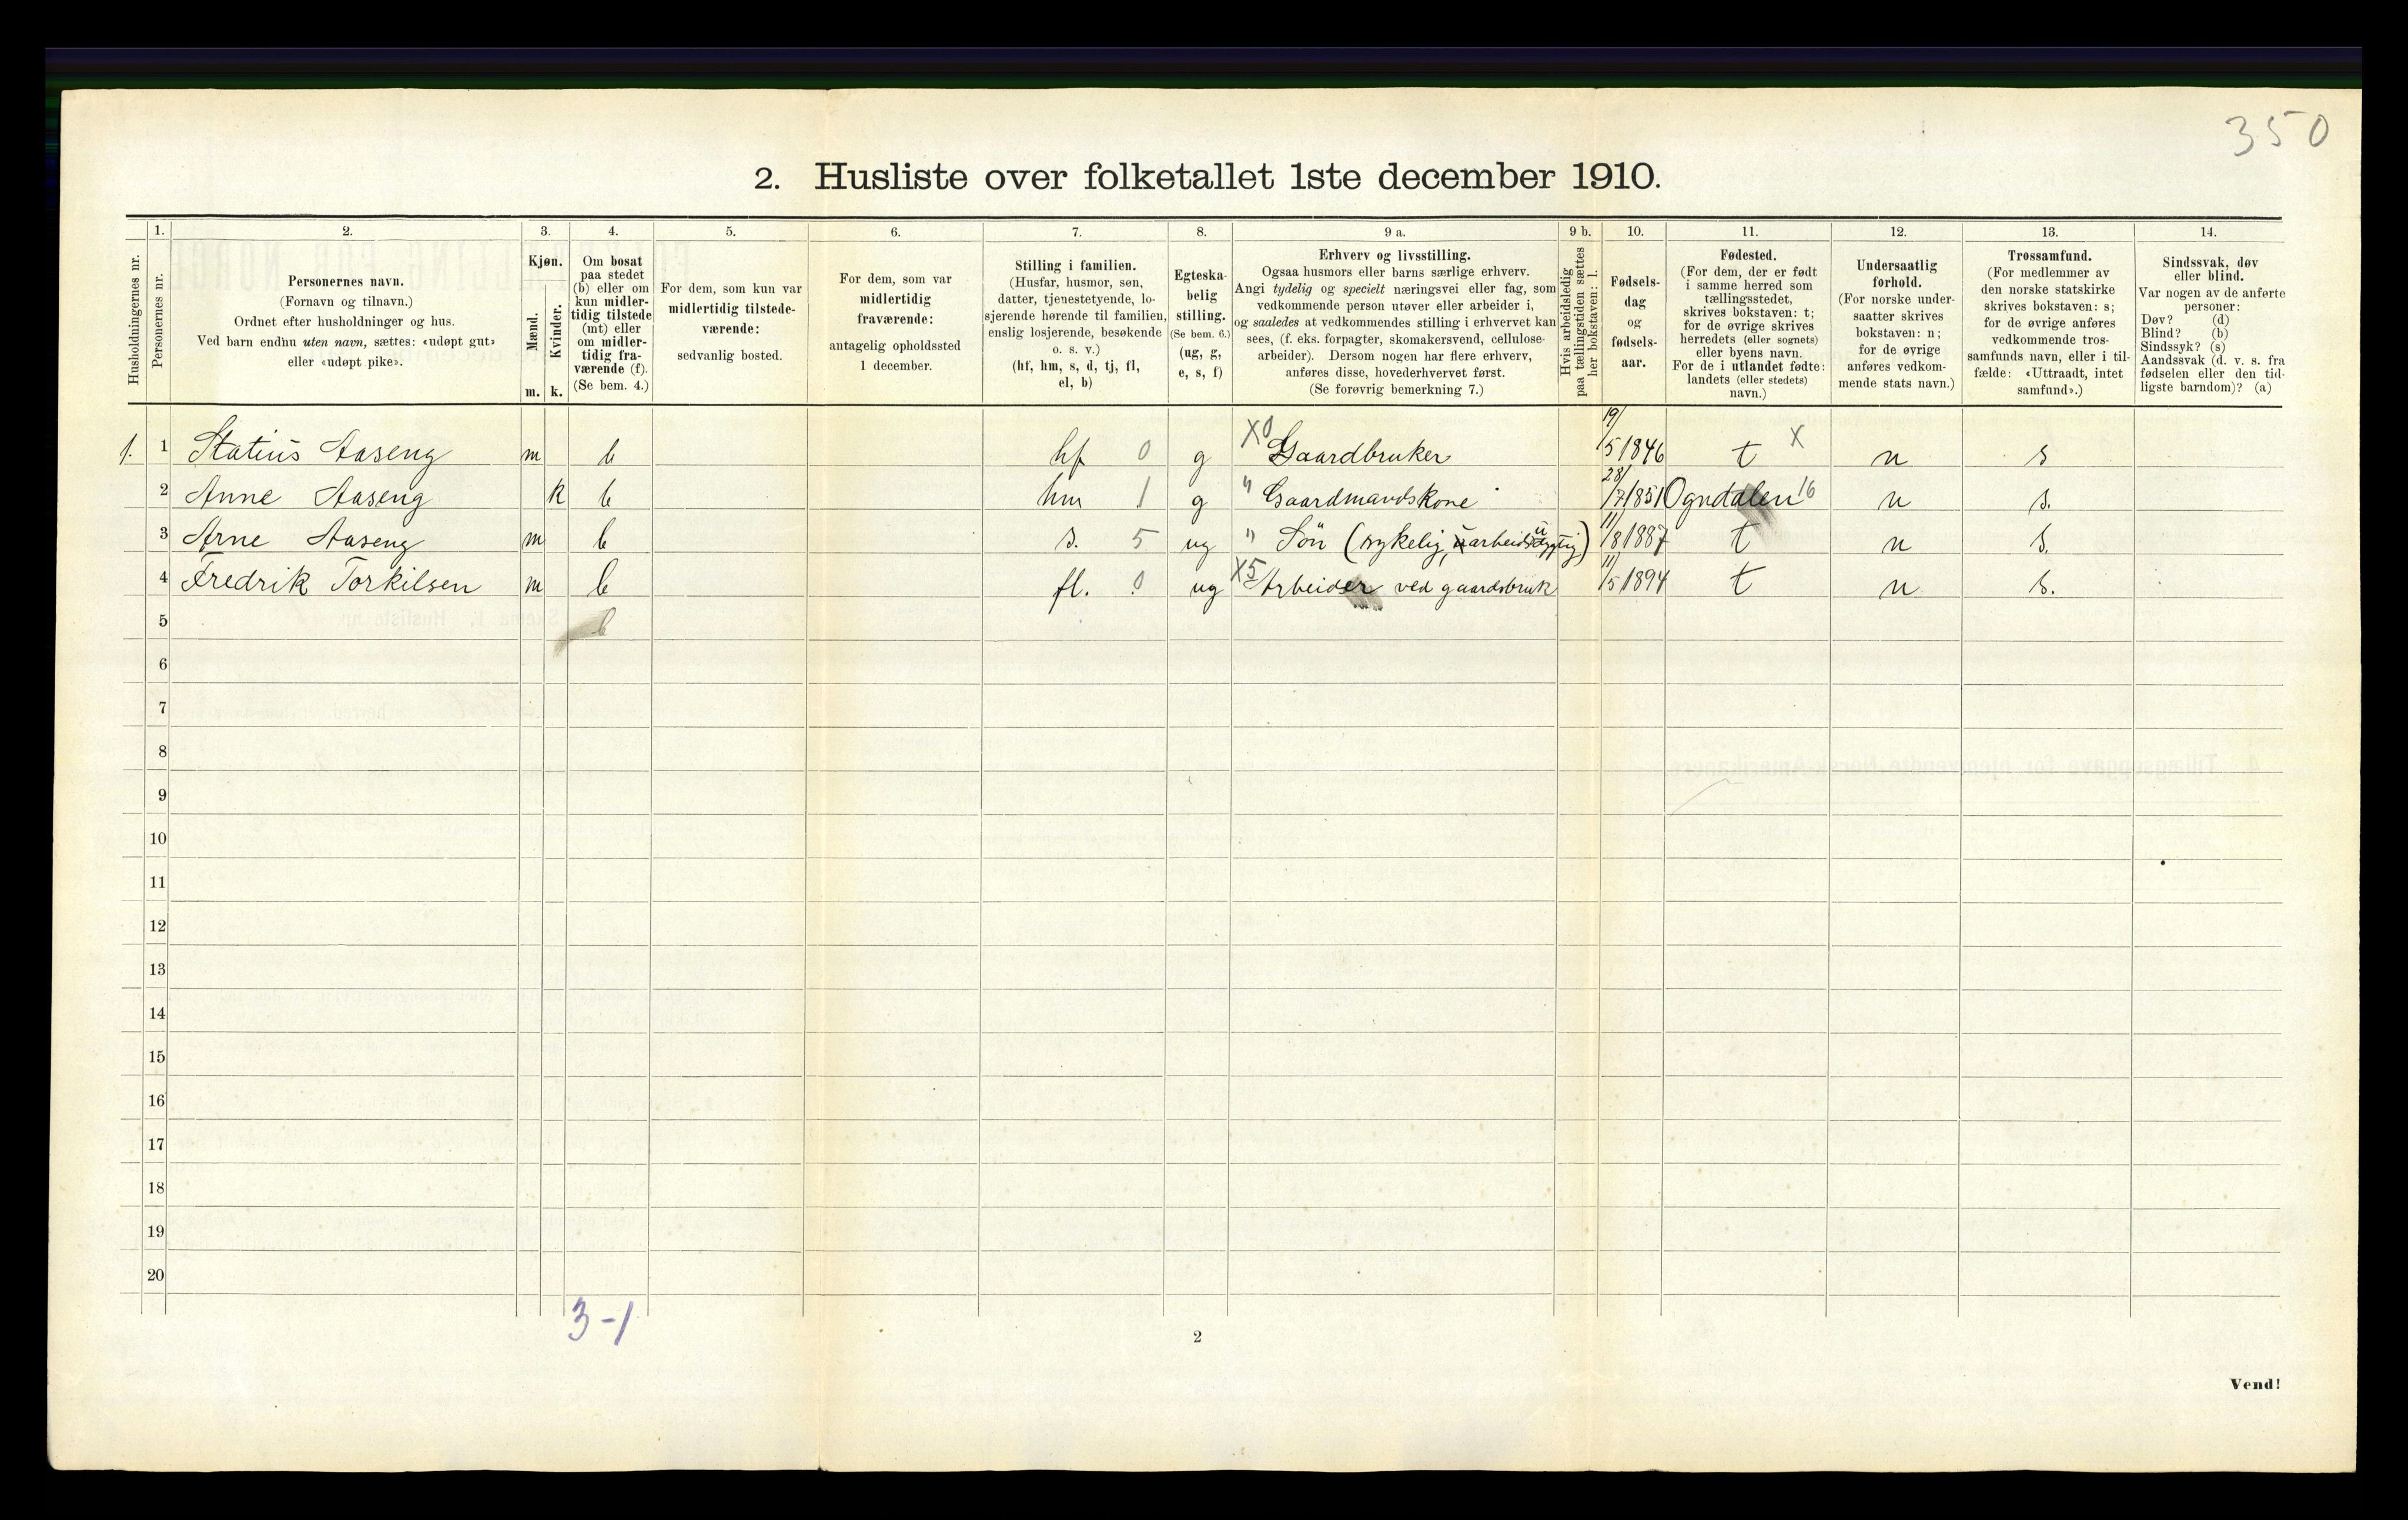 350
2. Husliste over folketallet 1ste december 1910.
Husholdningernes nr.
1. Personernes nr.
2. Personernes navn.
(Fornavn og tilnavn.)
Ordnet efter husholdninger og hus.
Ved barn endnu uten navn, sættes: «udøpt gut»
eller «udøpt pike».
3. Kjøn.
Mænd. m.
Kvinder. k.
4. Om bosat
paa stedet
(b) eller om
kun midler-
tidig tilstede
(mt) eller
om midler-
tidig fra-
værende (f).
(Se bem. 4.)
5. For dem, som kun var
midlertidig tilstede-
værende:
sedvanlig bosted.
6. For dem, som var
midlertidig
fraværende:
antagelig opholdssted
1 december.
7. Stilling i familien.
(Husfar, husmor, søn,
datter, tjenestetyende, lo-
sjerende hørende til familien,
enslig losjerende, besøkende
o. s. v.)
(hf, hm, s, d, tj, fl,
el, b)
8. Egteska-
belig
stilling.
(Se bem. 6.)
(ug, g,
e, s, f)
9 a. Erhverv og livsstilling.
Ogsaa husmors eller barns særlige erhverv.
Angi tydelig og specielt næringsvei eller fag, som
vedkommende person utøver eller arbeider i,
og saaledes at vedkommendes stilling i erhvervet kan
sees, (f. eks. forpagter, skomakersvend, cellulose-
arbeider). Dersom nogen har flere erhverv,
anføres disse, hovederhvervet først.
(Se forøvrig bemerkning 7.)
9 b. Hvis arbeidsledig
paa tællingstiden sættes
her bokstaven: l.
10. Fødsels-
dag
og
fødsels-
aar.
11. Fødested.
(For dem, der er født
i samme herred som
tællingsstedet,
skrives bokstaven: t;
for de øvrige skrives
herredets (eller sognets)
eller byens navn.
For de i utlandet fødte:
landets (eller stedets)
navn.)
12. Undersaatlig
forhold.
(For norske under-
saatter skrives
bokstaven: n;
for de øvrige
anføres vedkom-
mende stats navn.)
13. Trossamfund.
(For medlemmer av
den norske statskirke
skrives bokstaven: s;
for de øvrige anføres
vedkommende tros-
samfunds navn, eller i til-
fælde: «Uttraadt, intet
samfund».)
14. Sindssvak, døv
eller blind.
Var nogen av de anførte
personer:
Døv? (d)
Blind? (b)
Sindssyk? (s)
Aandssvak (d. v. s. fra
fødselen eller den tid-
ligste barndom)? (a)
1. 1 Statius Aaseng m b hf 0 g X0 Gaardbruker 19/5 1846 t X n s
2 Anne Aaseng k b hm 1 g " Gaardmandskone 28/7 1851 Ogndalen 16 n s.
3 Arne Aaseng m b s. 5 ug " Sön (sykelig, uarbeidsdygtig) 11/8 1887 t n s.
4 Fredrik Torkilsen m b fl. 0 ug X5 Arbeider ved gaardsbruk 11/5 1894 t n s.
5 b
6
7
8
9
10
11
12
13
14
15
16
17
18
19
20
3-1
2
Vend!